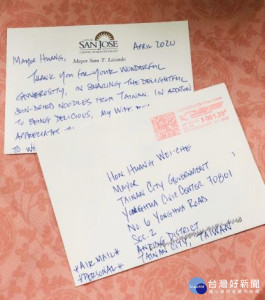 SAN JOSE
Mayor Sam T. Liccardo
APRIL 2020
MAYOR HUANG,
THANK YOU FOR YOUR WONDERFUL
GENEROSITY, IN SHARING THE DELIGHTFUL
SUN-DRIED NOODLES FROM TAIWAN. IN ADDITION
TO BEING DELICIOUS, MY WIFE
APPRECIATES
TO
HON HUANG WEI-CHE
MAYOR
TAINAN CITY GOVERNMENT
YONGHUA CIVIC CENTER 70801
NO 6 YONGHUA ROAD
SEC. 2
ANPING DISTRICT
TAINAN CITY, TAIWAN
*AIRMAIL*
*PERSONAL*
台灣好新聞